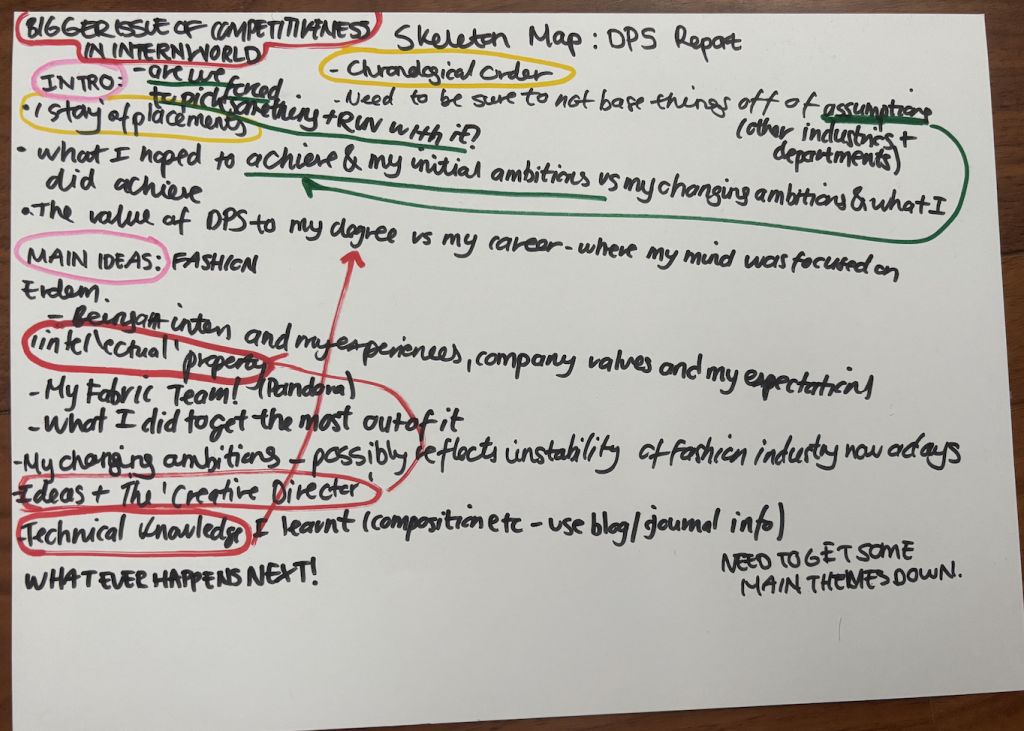 BIGGER ISSUE OF COMPETITIVENESS
IN INTERN WORLD
Skeleton Map: DPS Report
- Chronological Order
INTRO:
- are we forced
to pick something + RUN with it?
- Need to be sure to not base things off of assumptions
(other industries +
departments)
• 1 story of placements
• What I hoped to achieve & my initial ambitions vs my changing ambitions & what I
did achieve
• The value of DPS to my degree vs my career - where my mind was focused on
MAIN IDEAS: FASHION
Erdem.
- Being an intern and my experiences, company values and my expectations
'intellectual' property
- My Fabric Team! (Pandora)
- What I did to get the most out of it
- My changing ambitions - possibly reflects instability of fashion industry now adays
- Ideas + The 'Creative Director'
- Technical Knowledge I learnt (composition etc - use blog/journal info)
WHAT EVER HAPPENS NEXT!
NEED TO GET SOME
MAIN THEMES DOWN.